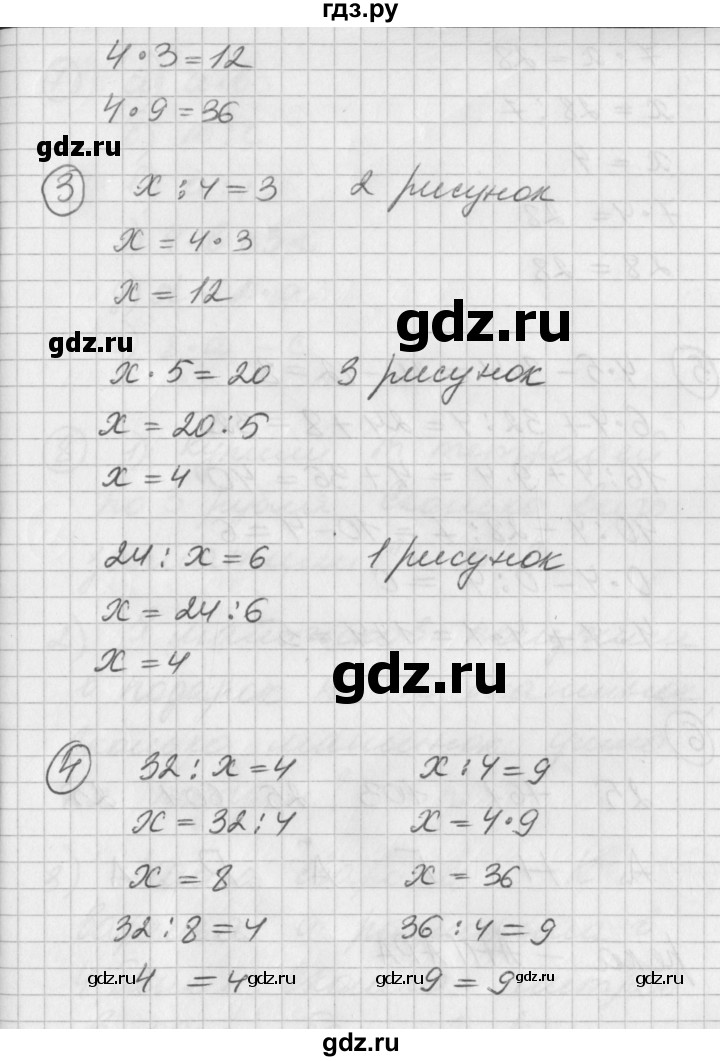 гдз.ру
4·3=12
4·9=36
gdz.ru
3 x:4=3 2 рисунок
x=4·3
x=12
gdz.ru
gdz.ru
x·5=20 3 рисунок
x=20:5
x=4
24:x=6 1 рисунок
x=24:6
x=4
gdz.ru
4 32:x=4 x:4=9
x=32:4 x=4·9
x=8 x=36
32:8=4 36:4=9
4=4 9=9
gdz.ru gdz.ru gdz.ru gdz.ru gdz.ru
gdz.ru